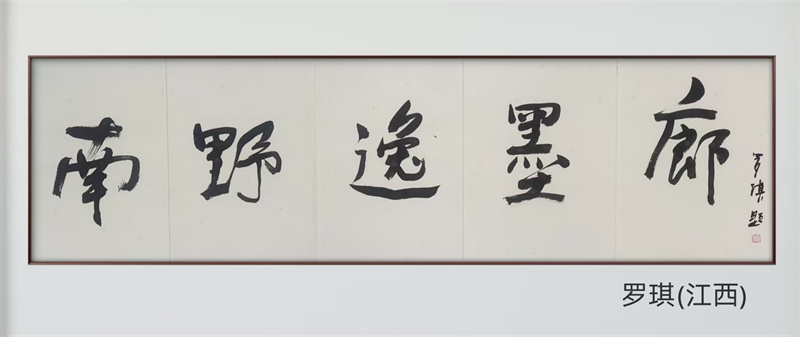 南野逸墨廊
罗琪题
罗琪(江西)